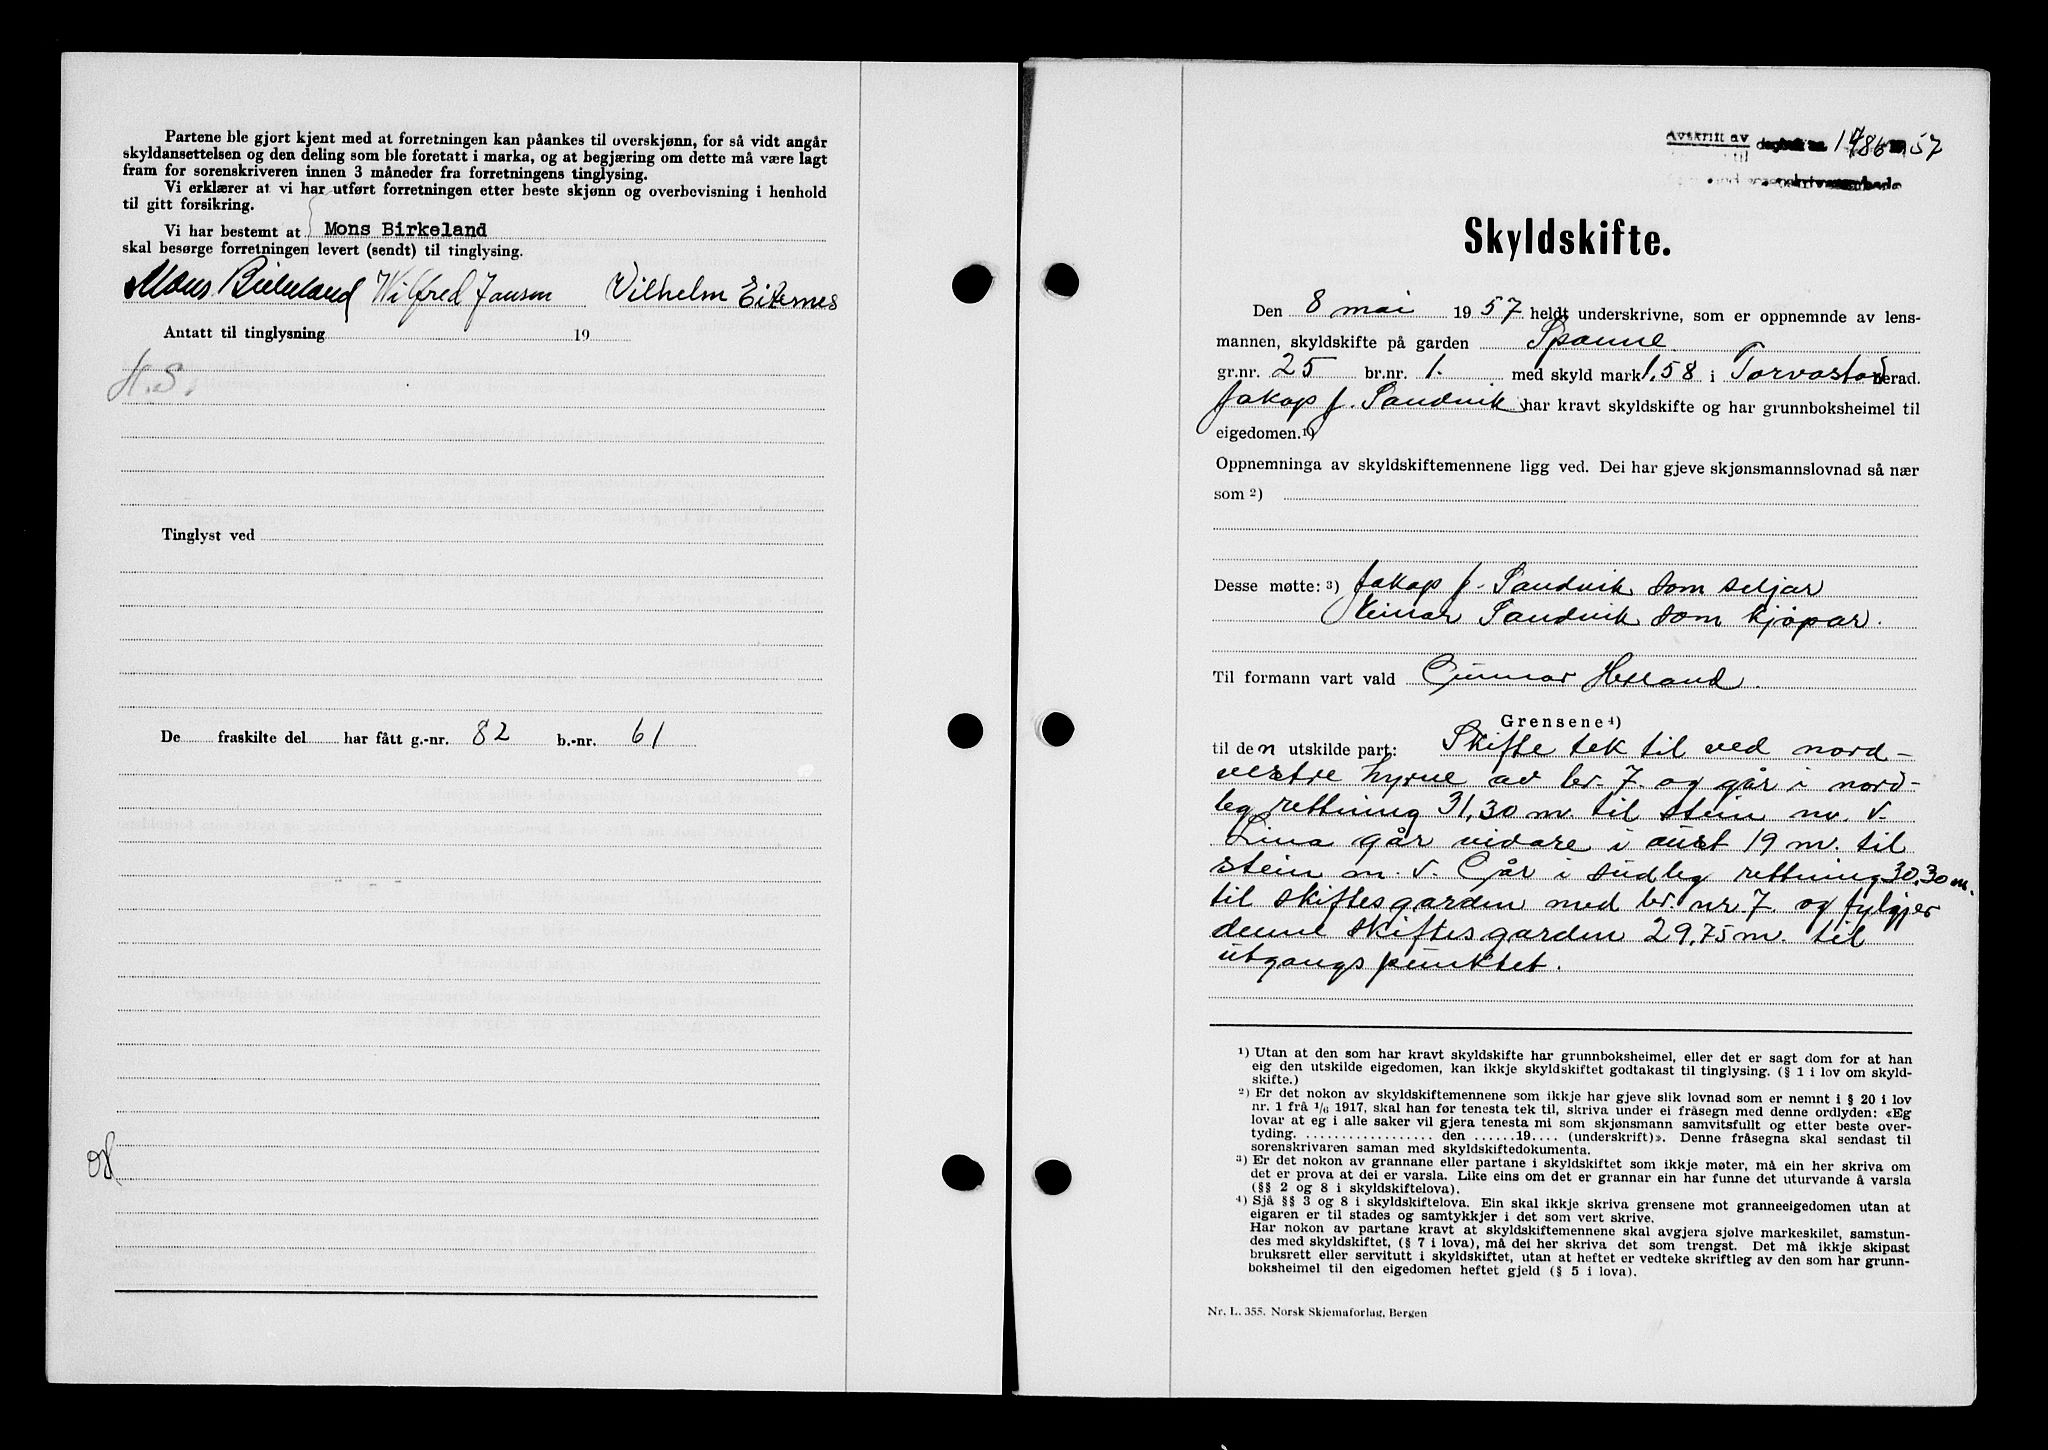 Partene ble gjort kjent med at forretningen kan påankes til overskjønn, for så vidt angår
skyldansettelsen og den deling som ble foretatt i marka, og at begjæring om dette må være lagt
fram for sorenskriveren innen 3 måneder fra forretningens tinglysing.
Vi erklærer at vi har utført forretningen etter beste skjønn og overbevisning i henhold
til gitt forsikring.
Vi har bestemt at Mons Birkeland
skal besørge forretningen levert (sendt) til tinglysing.
Mons Birkeland Wilfred Jansen Vilhelm Eitrnes
Antatt til tinglysning 19
H.S.
Tinglyst ved
De fraskilte del har fått g.-nr. 82 b.-nr. 61
Avskrift av dagbok nr. 1786 1957
Skyldskifte.
Den 8 mai 1957 heldt underskrivne, som er oppnemnde av lens-
mannen, skyldskifte på garden Spanne
gr.nr. 25 br.nr. 1. med skyld mark 1,58 i Torvastad herad.
Jakop J. Sandvik har kravt skyldskifte og har grunnboksheimel til
eigedomen.1)
Oppnemninga av skyldskiftemennene ligg ved. Dei har gjeve skjønsmannslovnad så nær
som 2)
Desse møtte: 3) Jakop J. Sandvik som seljar
Einar Sandvik som kjøpar.
Til formann vart vald Gunnar Hesland.
Grensene 4)
til den utskilde part: Skifte tek til ved nord-
vestre hyrne av br. 7. og går i nord-
leg rettning 31,30 m. til stein m. v.
Lina går vidare i aust 19 m. til
stein m. v. Går i sudleg rettning 30,30 m.
til skiftesgarden med br. nr. 7. og fylgjer
denne skiftesgarden 29,75 m. til
utgangspunktet.
1) Utan at den som har kravt skyldskifte har grunnboksheimel, eller det er sagt dom for at han
eig den utskilde eigedomen, kan ikkje skyldskiftet godtakast til tinglysing. (§ 1 i lov om skyld-
skifte.)
2) Er det nokon av skyldskiftemennene som ikkje har gjeve slik lovnad som er nemnt i § 20 i lov
nr. 1 frå 1/6 1917, skal han før tenesta tek til, skriva under ei fråsegn med denne ordlyden: «Eg
lovar at eg i alle saker vil gjera tenesta mi som skjønsmann samvitsfullt og etter beste over-
tyding. .................. den ......19.... (underskrift)». Denne fråsegna skal sendast til
sorenskrivaren saman med skyldskiftedokumenta.
3) Er det nokon av grannane eller partane i skyldskiftet som ikkje møter, må ein her skriva om
det er prova at dei er varsla. Like eins om det er grannar ein har funne det uturvande å varsla
(§§ 2 og 8 i skyldskiftelova).
4) Sjå §§ 3 og 8 i skyldskiftelova. Ein skal ikkje skriva grensene mot granneeigedomen utan at
eigaren er til stades og samtykkjer i det som vert skrive.
Har nokon av partane kravt at skyldskiftemennene skal avgjera sjølve markeskilet, samstun-
des med skyldskiftet, (§ 7 i lova), må dei her skriva det som trengst. Det må ikkje skipast
bruksrett eller servitutt i skyldskiftet, utan at heftet er vedteke skriftleg av den som har grunn-
boksheimel til den eigedomen heftet gjeld (§ 5 i lova).
Nr. L. 355. Norsk Skjemaforlag, Bergen